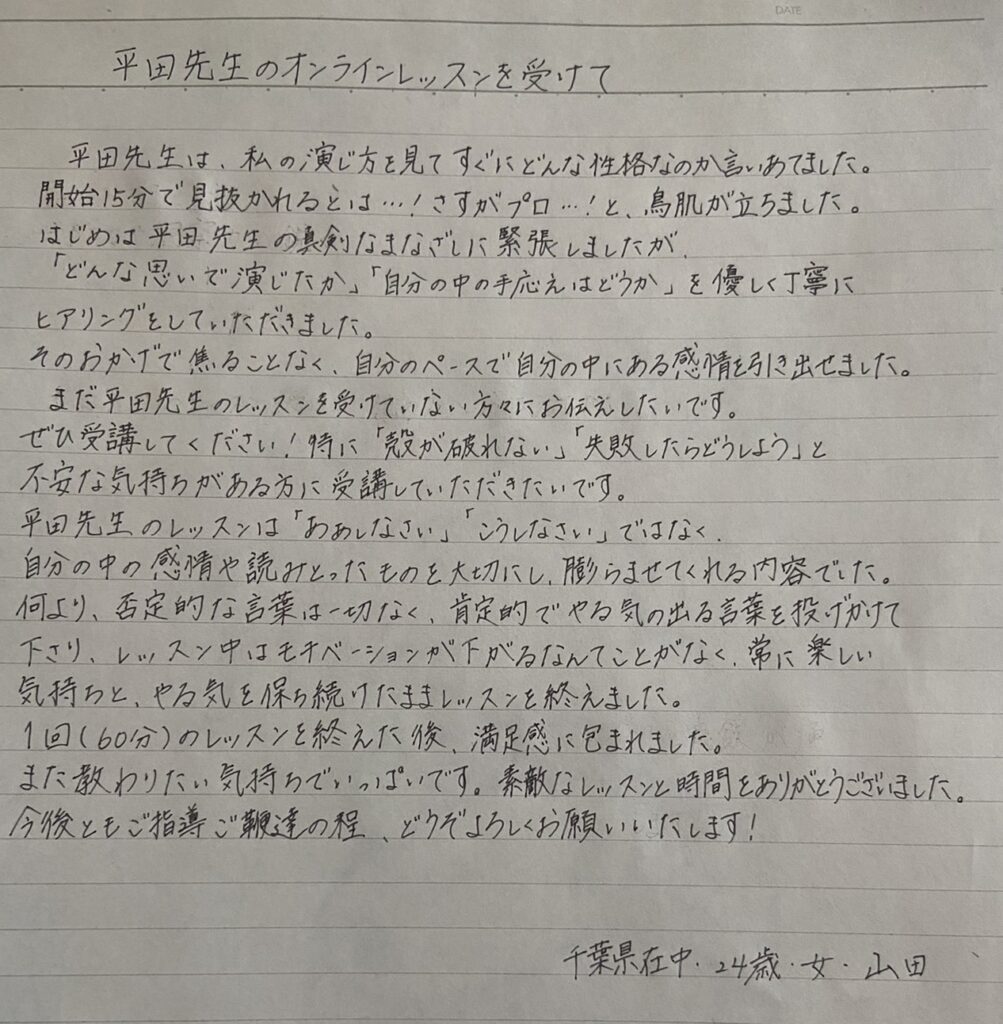 DATE
平田先生のオンラインレッスンを受けて
平田先生は、私の演じ方を見てすぐにどんな性格なのか言いあてました。
開始15分で見抜かれるとは…！さすがプロ…！と、鳥肌が立ちました。
はじめは平田先生の真剣なまなざしに緊張しましたが、
「どんな思いで演じたか」「自分の中の手応えはどうか」を優しく丁寧に
ヒアリングをしていただきました。
そのおかげで焦ることなく、自分のペースで自分の中にある感情を引き出せました。
まだ平田先生のレッスンを受けていない方々にお伝えしたいです。
ぜひ受講してください！特に「殻が破れない」「失敗したらどうしよう」と
不安な気持ちがある方に受講していただきたいです。
平田先生のレッスンは「あぁしなさい」「こうしなさい」ではなく、
自分の中の感情や読みとったものを大切にし、膨らませてくれる内容でした。
何より、否定的な言葉は一切なく、肯定的でやる気の出る言葉を投げかけて
下さり、レッスン中はモチベーションが下がるなんてことがなく、常に楽しい
気持ちと、やる気を保ち続けたままレッスンを終えました。
1回(60分)のレッスンを終えた後、満足感に包まれました。
また教わりたい気持ちでいっぱいです。素敵なレッスンと時間をありがとうございました。
今後ともご指導ご鞭達の程、どうぞよろしくお願いいたします！
千葉県在中・24歳・女・山田